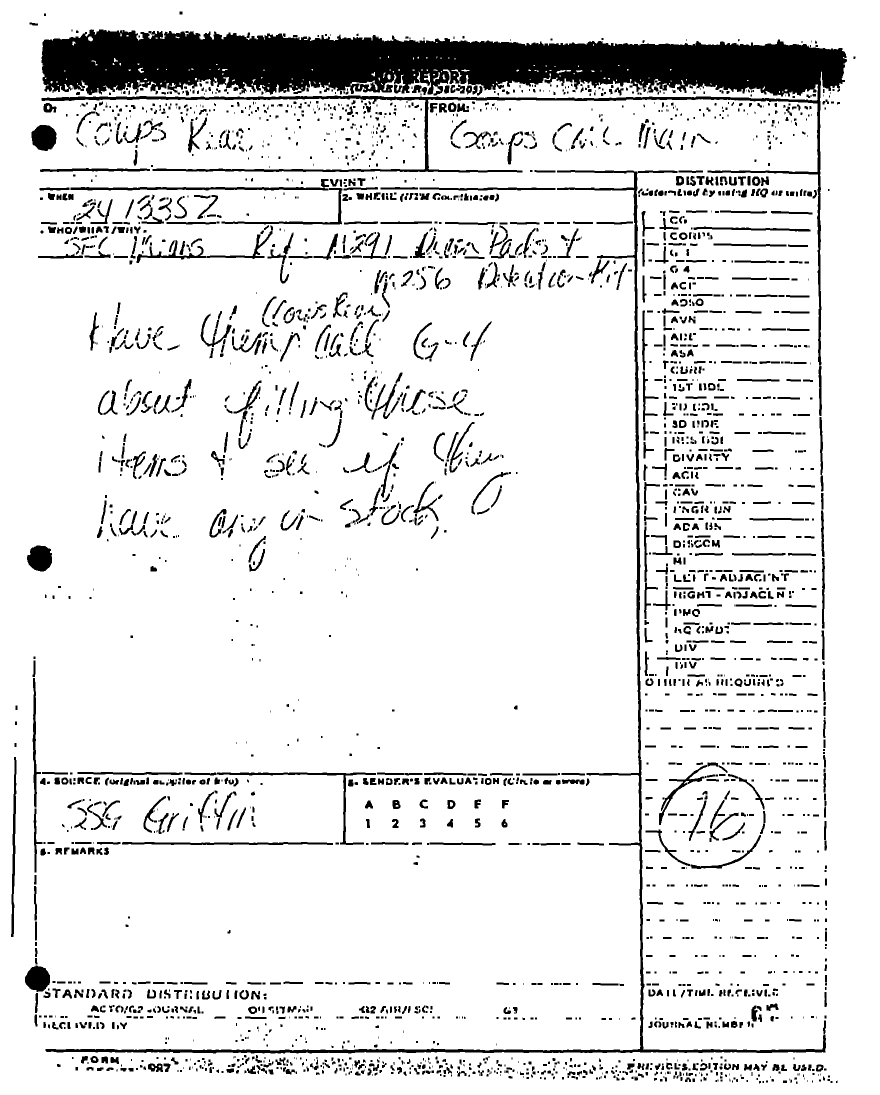 SPOT REPORT
(USAREUR Reg 380-
O:
FROM:
Corps Rear
Corps Main
EVENT
DISTRIBUTION
(determined by using HQ or units)
WHEN
241335Z
2. WHERE (UTM Coordinates)
WHO/WHAT/WHY
SFC Mims Ref: M291 Decon Packs +
M256 Detection Kit
(Corps Rear)
Have them call G-4
about filling those
items + see if they
have any in stock.
CG
CORPS
G 1
G 4
ADSO
AVN
ASA
1ST BDE
2D BDE
3D BDE
DIVARTY
ACR
CAV
ENGR BN
ADA BN
DISCOM
MI
LEFT - ADJACENT
RIGHT - ADJACENT
PMO
HQ CMDT
DIV
DIV
OTHER AS REQUIRED
4. SOURCE (original supplier of info)
SSG Griffin
5. SENDER'S EVALUATION (Circle as aware)
A B C D E F
1 2 3 4 5 6
16
6. REMARKS
STANDARD DISTRIBUTION:
G2 JOURNAL
G2 AIR/
G3
RECEIVED BY
DATE/TIME RECEIVED
JOURNAL NUMBER
FORM
987
PREVIOUS EDITION MAY BE USED.